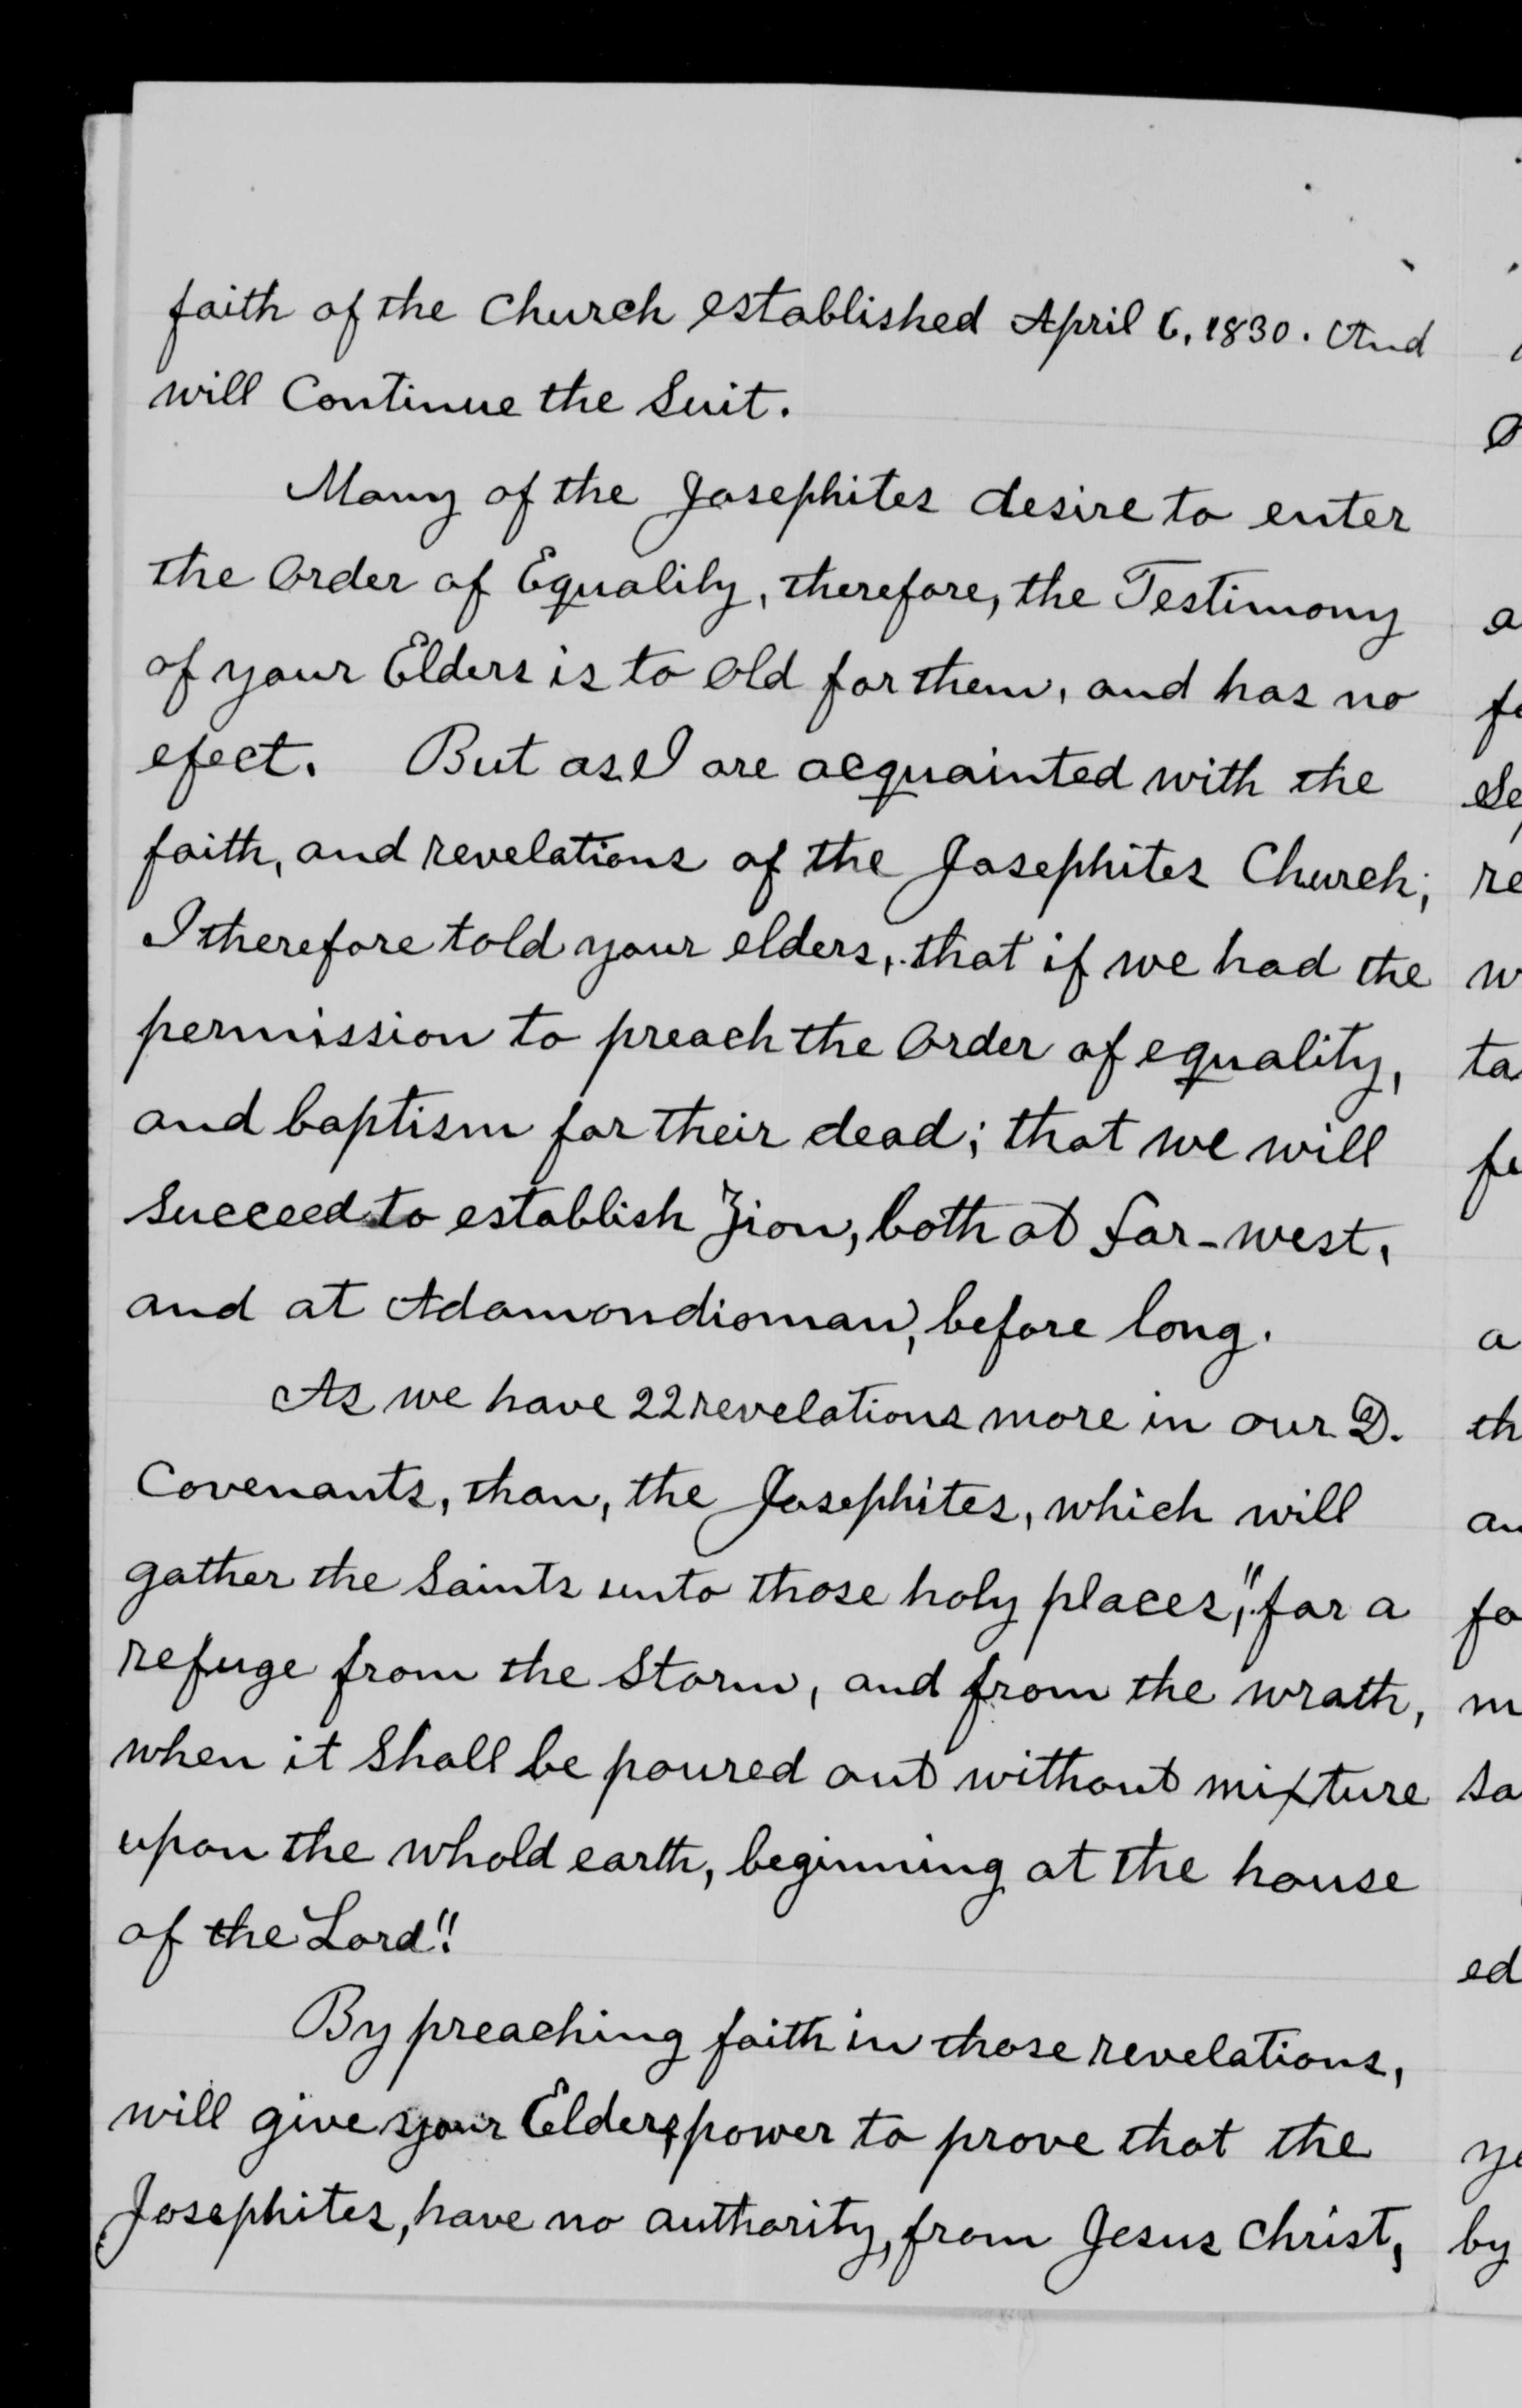 faith of the Church established April 6, 1830. And
will Continue the Suit.
Many of the Josephites desire to enter
the Order of Equality, therefore, the Testimony
of your Elders is to Old for them, and has no
efect. But as I are acquainted with the
faith, and revelations of the Josephites Church;
I therefore told your elders, that if we had the
permission to preach the Order of equality,
and baptism for their dead; that we will
Succeed to establish Zion, both at far-west,
and at Adamondioman, before long.
As we have 22 revelations more in our D.
Covenants, than, the Josephites, which will
gather the Saints unto those holy places, "for a
refuge from the Storm, and from the wrath,
when it Shall be poured out without mixture
upon the whold earth, beginning at the house
of the Lord".
By preaching faith in those revelations,
will give your Elders, power to prove that the
Josephites, have no authority, from Jesus Christ,